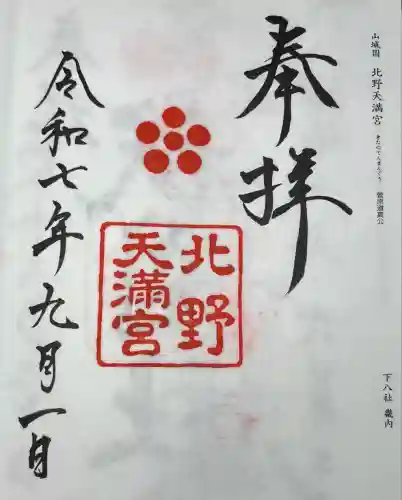 山城國 北野天満宮 きたのてんまんぐう 菅原道真公
下八社 畿内
奉拝
北野
天満宮
令和七年九月一日